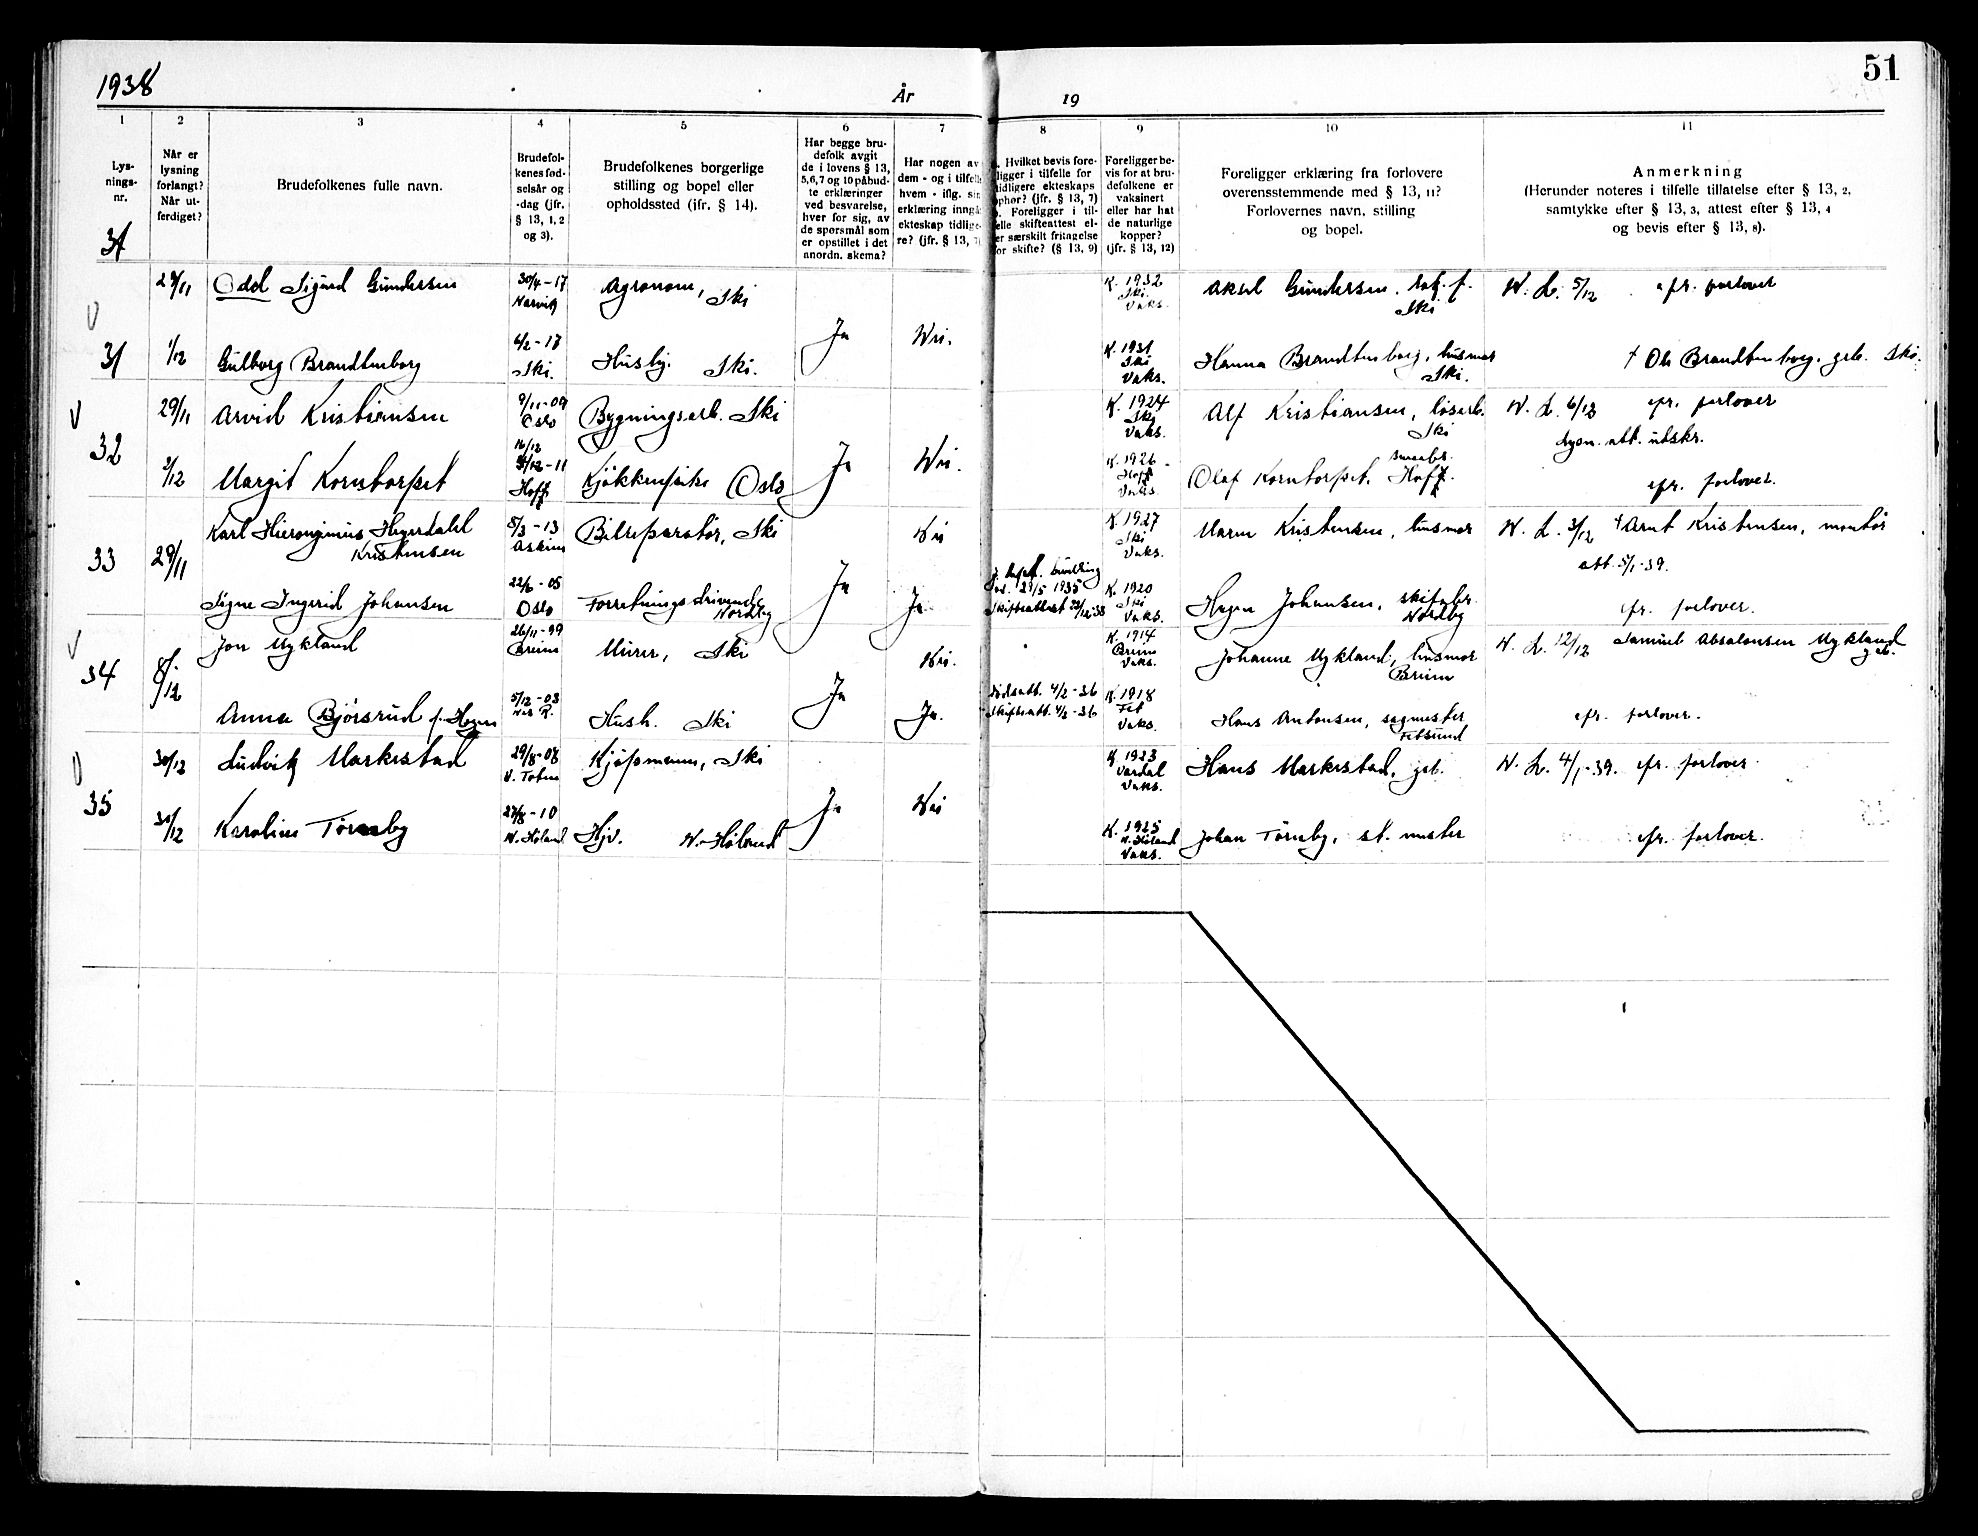 1938
År
19
51
1
2
3
4
5
6
7
8
9
10
11
Lys-
nings-
nr.
Når er
lysning
forlangt?
Når ut-
ferdiget?
Brudefolkenes fulle navn.
Brudefol-
kenes fød-
selsår og
-dag (jfr.
§ 13, 1, 2
og 3).
Brudefolkenes borgerlige
stilling og bopel eller
opholdssted (jfr. § 14).
Har begge bru-
defolk avgit
de i lovens § 13,
5,6,7 og 10 påbud-
te erklæringer
ved besvarelse,
hver for sig, av
de spørsmål som
er opstillet i det
anordn. skema?
Har nogen av
dem - og i tilfelle
hvem - iflg. sin
erklæring inngå
ekteskap tidlige-
re? (jfr. § 13, 7)
. Hvilket bevis fore-
ligger i tilfelle for
tidligere ekteskaps
ophør? (jfr. § 13, 7)
. Foreligger i til-
elle skifteattest el-
er særskilt fritagelse
for skifte? (§ 13, 9)
Foreligger be-
vis for at bru-
defolkene er
vaksinert
eller har hat
de naturlige
kopper?
(jfr. § 13, 12)
Foreligger erklæring fra forlovere
overensstemmende med § 13, 11?
Forlovernes navn, stilling
og bopel.
Anmerkning
(Herunder noteres i tilfelle tillatelse efter § 13, 2,
samtykke efter § 13, 3, attest efter § 13, 4
og bevis efter § 13, 8).
31
29/11 Odd Sigurd Gundersen 30/4-17 Agronom, Ski K. 1932 Aksel Gundersen N. L. 5/12 efr. forlover
Narvik Ski Ski
Vaks.
V Ja Nei.
31 1/12 Gulborg Brandtenborg 4/2-17 Husby. Ski. K. 1931 Hanna Brandtenborg, husmor † Ole Brandtenborg. grb. Ski.
Ski. Ski Ski.
Vaks.
V 29/11 Arvid Kristiansen 9/11-09 Bygningsarb. Ski K. 1924 Alf Kristiansen, løsarb. N. L. 6/12 efr. forlover
Oslo Ski Ski
Vaks. att. utskr.
32 16/12 Ja Nei.
2/12 Margit Korntorpet 12-11 Oslo K. 1926 Olaf Korntorpet, Hoff. efr. forlover.
Hoff Hoff
Vaks.
Karl Hieronymus Hegerdahl 5/3-13 Bilreparatør, Ski Nei K. 1927 Maren Kristensen, husmor N. L. 3/12 † Arnt Kristensen, montør
Kristensen Askim Ski
Vaks. att. 5/1-39.
33 29/11 Ja
Signe Ingerid Johansen 22/6-05 Forretningsdrivende Ja. 29/5 1935 K. 1920 Hagen Johansen, efr. forlover.
Oslo Nordby Skifteattest Ski Nordby
Vaks.
V Jon Mykland 26/11-99 Murer, Ski Nei. K. 1914 Johanne Mykland, husmor N. L. 12/12 Samuel Absalonsen Mykland
Breim Breim Breim
Vaks.
34 8/12 Ja
Anna Bjørsrud f. Hagen 5/12-03 Hush. Ski Ja. Dødsatt. 4/2-36 K. 1918 Hans Antonsen, sagmester efr. forlover.
Nes R. Skifteatt. 4/2-36 Fet Fetsund
Vaks.
V 30/12 Ludvik Markestad 29/8-08 Kjøpmann, Ski K. 1923 Hans Markestad, N. L. 4/1-39. efr. forlover
V. Toten Vardal
Vaks.
35 Ja Nei
30/12 Karoline Tørnby 27/8-10 Hjv. N. Høland K. 1925 Johan Tørnby, st. mester efr. forlover.
N. Høland N. Høland
Vaks.